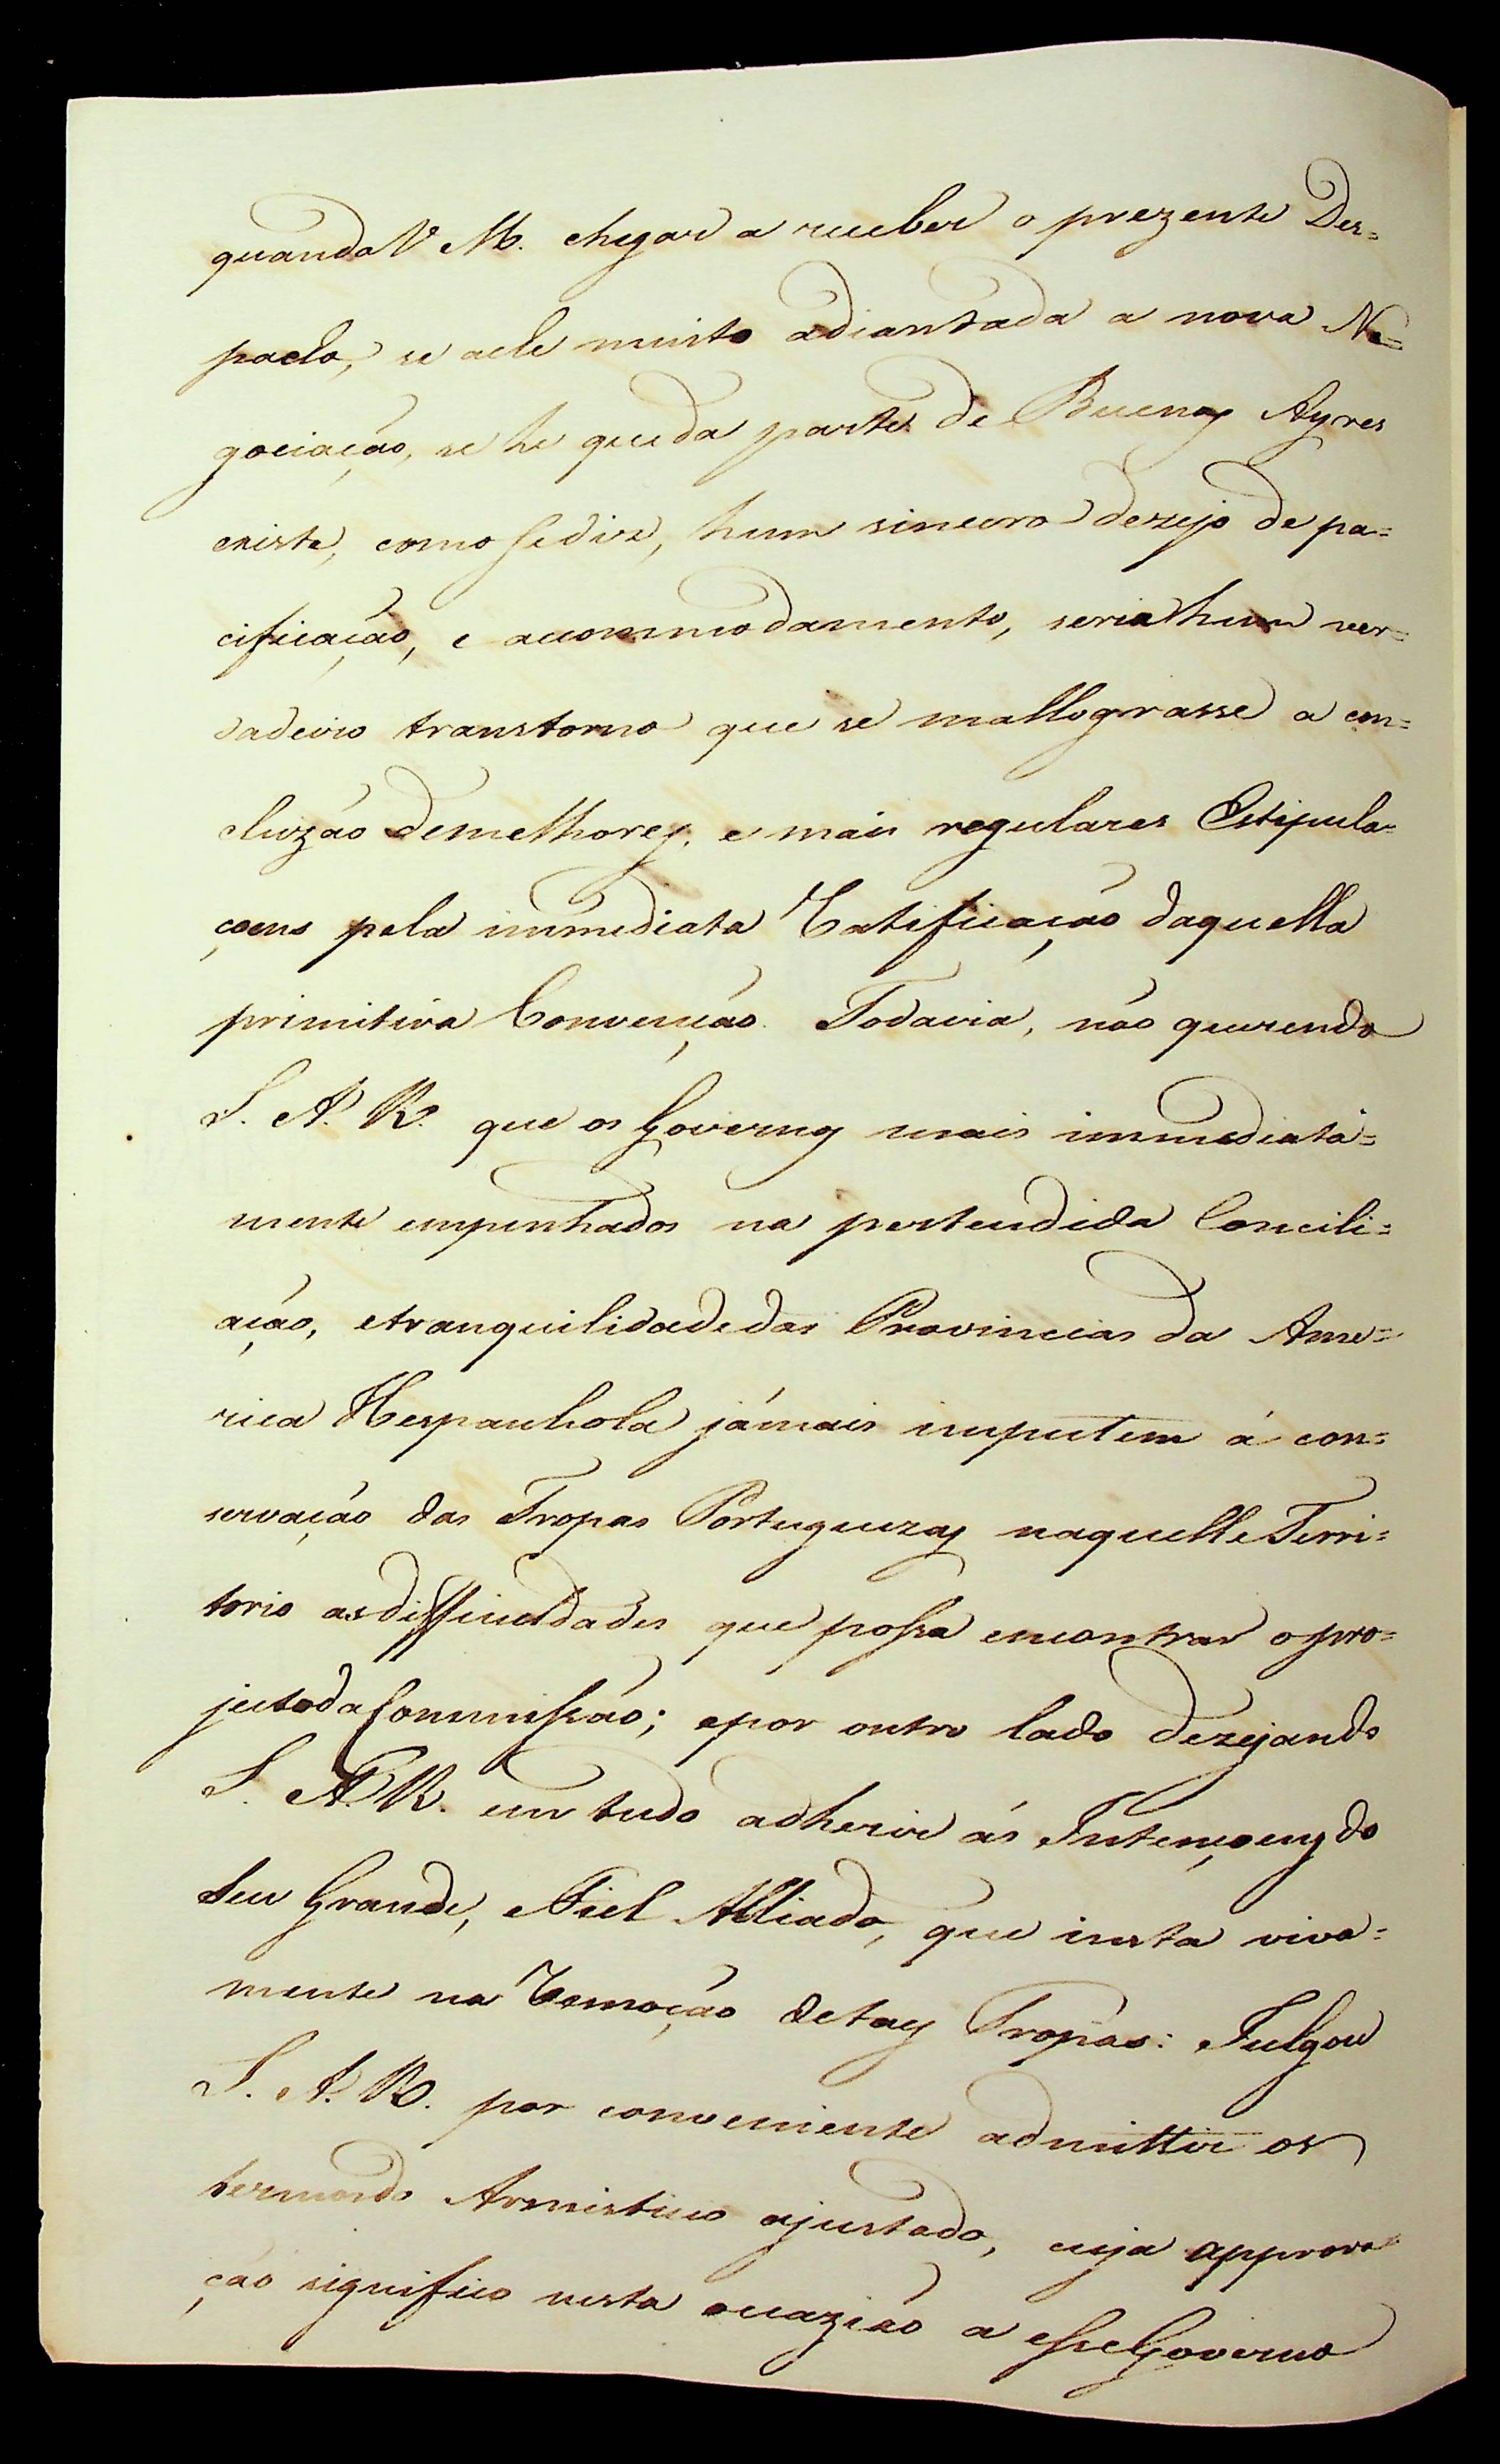 quando V M. chegar a receber o prezente Des=
pacho, se ache muito adiantada a nova Ne=
gociação, se he que da parte de Buenos Ayres
existe, como se diz, hum sincero dezejo de pa=
cificação, e accommodamento, seria hum ver=
dadeiro transtorno que se mallograsse a con=
cluzão de melhores, e mais regulares Estipula=
çoens pela immediata Ratificação daquella
primitiva Convenção. Todavia, não querendo
S. A. R. que os Governos mais immediata=
mente empenhados na pertendida Concili=
ação, e tranquilidade das Provincias da Ame=
rica Hespanhola jámais imputem á con=
servação das Tropas Portuguezas naquelle Terri=
torio as difficuldades que possa encontrar o pro=
jecto da Commissão; e por outro lado dezejando
S. A. R. em tudo adherir ás Intençoens do
Seu Grande, e Fiel Alliado, que insta viva=
mente na Remoção de taes Tropas: Julgou
S. A. R. por conveniente admittir os
termos do Armisticio ajustado, cuja approva
ção significo nesta occazião a esse Governo